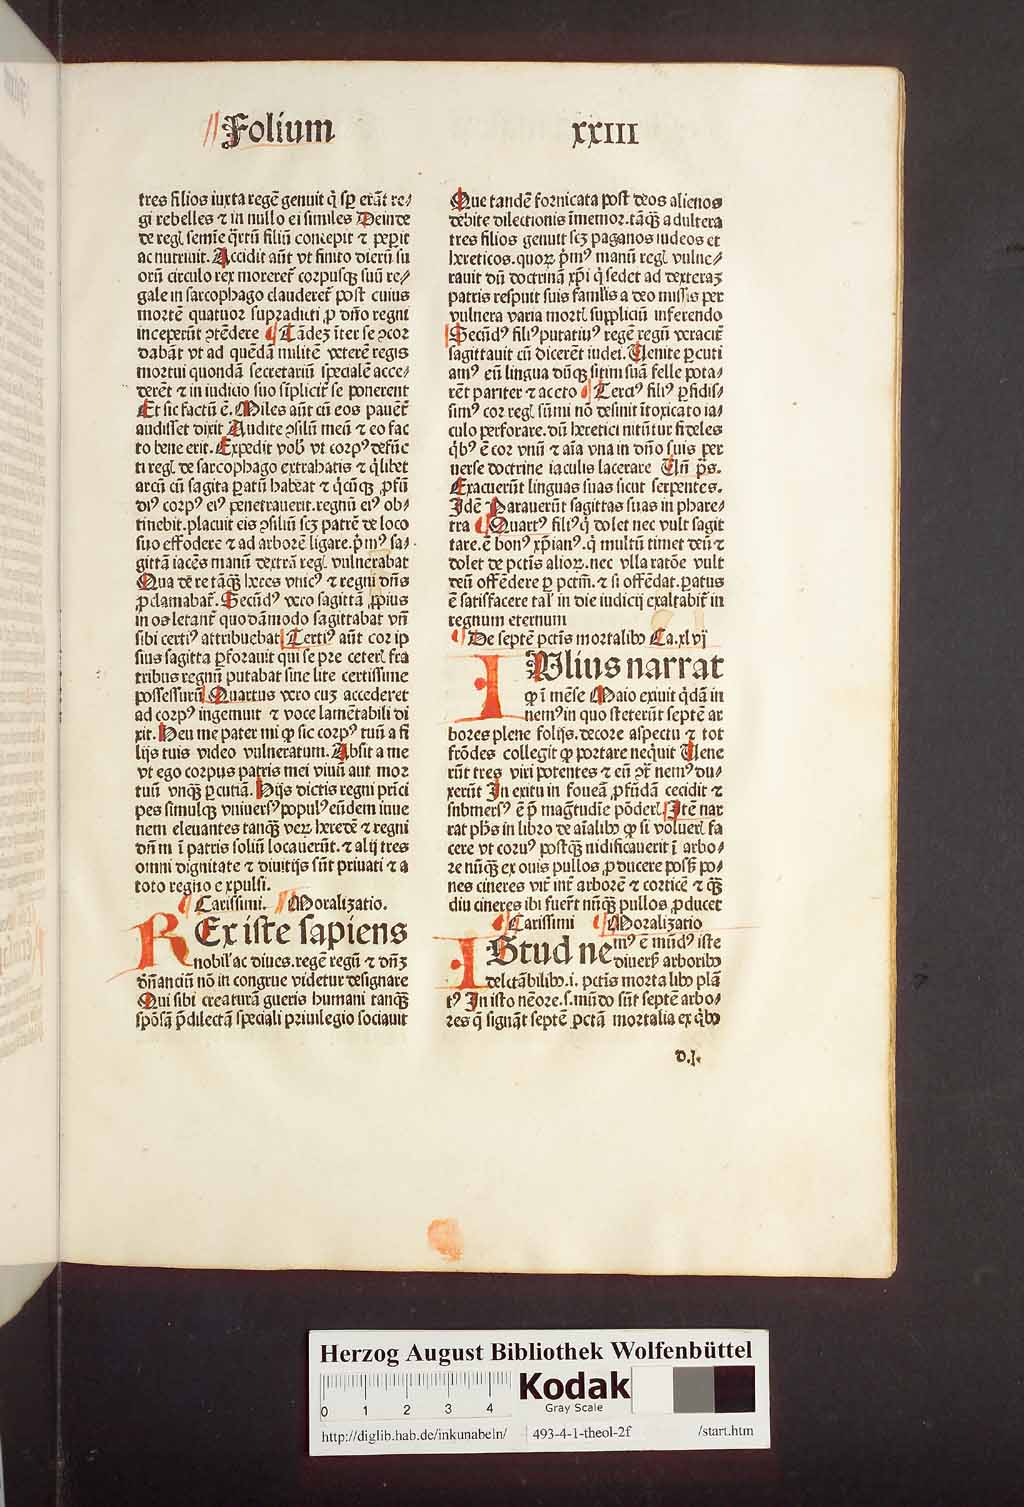 Folium
XXIII
tres filios iuxta regē genuit q̄ sp̄ erāt re⸗
gi rebelles ⁊ in nullo ei similes Deinde
de regl̓ semīe q̄rtū filiū concepit ⁊ peperit
ac nutriuit. Accidit aūt vt finito dierū su
orū circulo rex moreret̄ corpusqꝫ suū re⸗
gale in sarcophago clauderet̄ post cuius
mortē quatuor supradicti ꝓ dīto regni
inceperūt ꝯtēdere Tādeꝫ iter se ꝯcor
dabāt vt ad quēdā militē veterē regis
mortui quondā secretariū specialē acce⸗
derēt ⁊ in iudicio suo sīplicit̄ se ponerent
Et sic factū ē. Miles aūt cū eos pauēt̄
audisset dixit Audite ꝯsilū meū ⁊ eo fac
to bene erit. Expedit vob̓ vt corpꝰ defūc
ti regl̓ de sarcophago extrahatis ⁊ q̄libet
arcū cū sagita ꝑatū habeat ⁊ q̄cūqꝫ ꝓfū
diꝰ corpꝰ eiꝰ penetrauerit. regnū eiꝰ ob⸗
tinebit. placuit eis ꝯsiliū scꝫ patrē de loco
suo effodere ⁊ ad arborē ligare. p̄mꝰ sa⸗
gittā iacēs manū dextrā regl̓ vulnerabat
Qua de re tāqꝫ heres vnicꝰ ⁊ regni dn̄s
ꝓclamabat̄. Secūdꝰ vero sagittā ꝓpius
in os letant̄ quodāmodo sagittabat vn̄
sibi certiꝰ attribuebat Tertiꝰ aūt cor ip
sius sagitta ꝑforauit qui se pre ceterl̓ fra
tribus regnū putabat sine lite certissime
possessurū Quartus vero cuꝫ accederet
ad corpꝰ ingemuit ⁊ voce lamētabili di
xit. Heu me pater mi ꝙ sic corpꝰ tuū a fi
lijs tuis video vulneratum. Absit a me
vt ego corpus patris mei viuū aut mor
tuū vnqꝫ ꝑcutiā. Hijs dictis regni prīci
pes simulqꝫ vniuersꝰ populꝰ eūdem iuue
nem eleuantes tanqꝫ veꝝ heredē ⁊ regni
dn̄m ī patris soliū locauerūt. ⁊ alij tres
omni dignitate ⁊ diuitijs sūt priuati ⁊ a
toto regno expulsi.
Carissimi. Moralizatio.
REx iste sapiens
nobil̓ ac diues. regē regū ⁊ dn̄ꝫ
dn̄anciū nō in congrue videtur designare
Qui sibi creaturā gueris humani tanqꝫ
spōsā p̄dilectā speciali priuilegio sociauit
Que tandē fornicata post deos alienos
debite dilectionis īmemor. tāqꝫ adultera
tres filios genuit scꝫ paganos iudeos et
hereticos. quoꝝ p̄mꝰ manū regl̓ vulne⸗
rauit dū doctrinā xp̄i q̄ sedet ad dexteraꝫ
patris respuit suis famil̓is a deo missis per
vulnera varia mortl̓ suppliciū inferendo
Secūdꝰ filiꝰ putatiuꝰ regē regū veracit̄
sagittauit cū dicerēt iudei. Uenite ꝑcuti
amꝰ eū lingua dūqꝫ sitim suā felle pota⸗
rēt pariter ⁊ aceto Terciꝰ filiꝰ ꝑfidis⸗
simꝰ cor regl̓ sūmi nō desinit ītoxicato ia⸗
culo perforare. dū heretici nitūtur fideles
q̄bꝰ ē cor vnū ⁊ aīa vna in dn̄o suis per
uerse doctrine iaculis lacerare Un̄ p̄s.
Exacuerūt linguas suas sicut serpentes.
Idē Parauerūt sagittas suas in phare⸗
tra Quartꝰ filiꝰ q̄ dolet nec vult sagit
tare. ē bonꝰ xp̄ianꝰ. q̄ multū timet deū ⁊
dolet de pctīs alioꝝ. nec vlla ratōe vult
deū offēdere per pctm̄. ⁊ si offēdat. ꝑatus
ē satisfacere tal̓ in die iudicij exaltabit̄ in
regnum eternum
De septē pctīs mortalibꝫ Ca. xlvj
IUlius narrat
ꝙ ī mēse Maio exiuit q̄dā in
nemꝰ in quo steterūt septē ar
bores plene folijs. decore aspectu ⁊ tot
frōdes collegit ꝙ portare neq̄uit Uene
rūt tres viri potentes ⁊ eū ex̄ nemꝰ du⸗
xerūt In exitu in foueā ꝓfūdā cecidit ⁊
submersꝰ ē p̄ magītudīe pōderl̓ Itē nar
rat ph̄s in libro de aīalibꝫ ꝙ si voluerl̓ fa
cere vt coruꝰ postqꝫ nidificauerit ī arbo⸗
re nūqꝫ ex ouis pullos ꝓducere possꝫ po⸗
nes cineres vit̄ int̄ arborē ⁊ corticē ⁊ qꝫ
diu cineres ibi fuerīt nūqꝫ pullos ꝓducet
Carissimi Moralizatio
IStud nemꝰ ē mūdꝰ iste
diuersꝭ arboribꝫ
delctābilibꝫ. i. pctīs morta libꝫ plā
tꝰ In isto nēore. s. mūdo sūt septē arbo⸗
res q̄ signāt septē pctā mortalia ex q̄bꝫ
d.I.
Herzog August Bibliothek Wolfenbüttel
0 1 2 3 4
Kodak
Gray Scale
http://diglib.hab.de/inkunabeln/ 493-4-1-theol-2f /start.htm